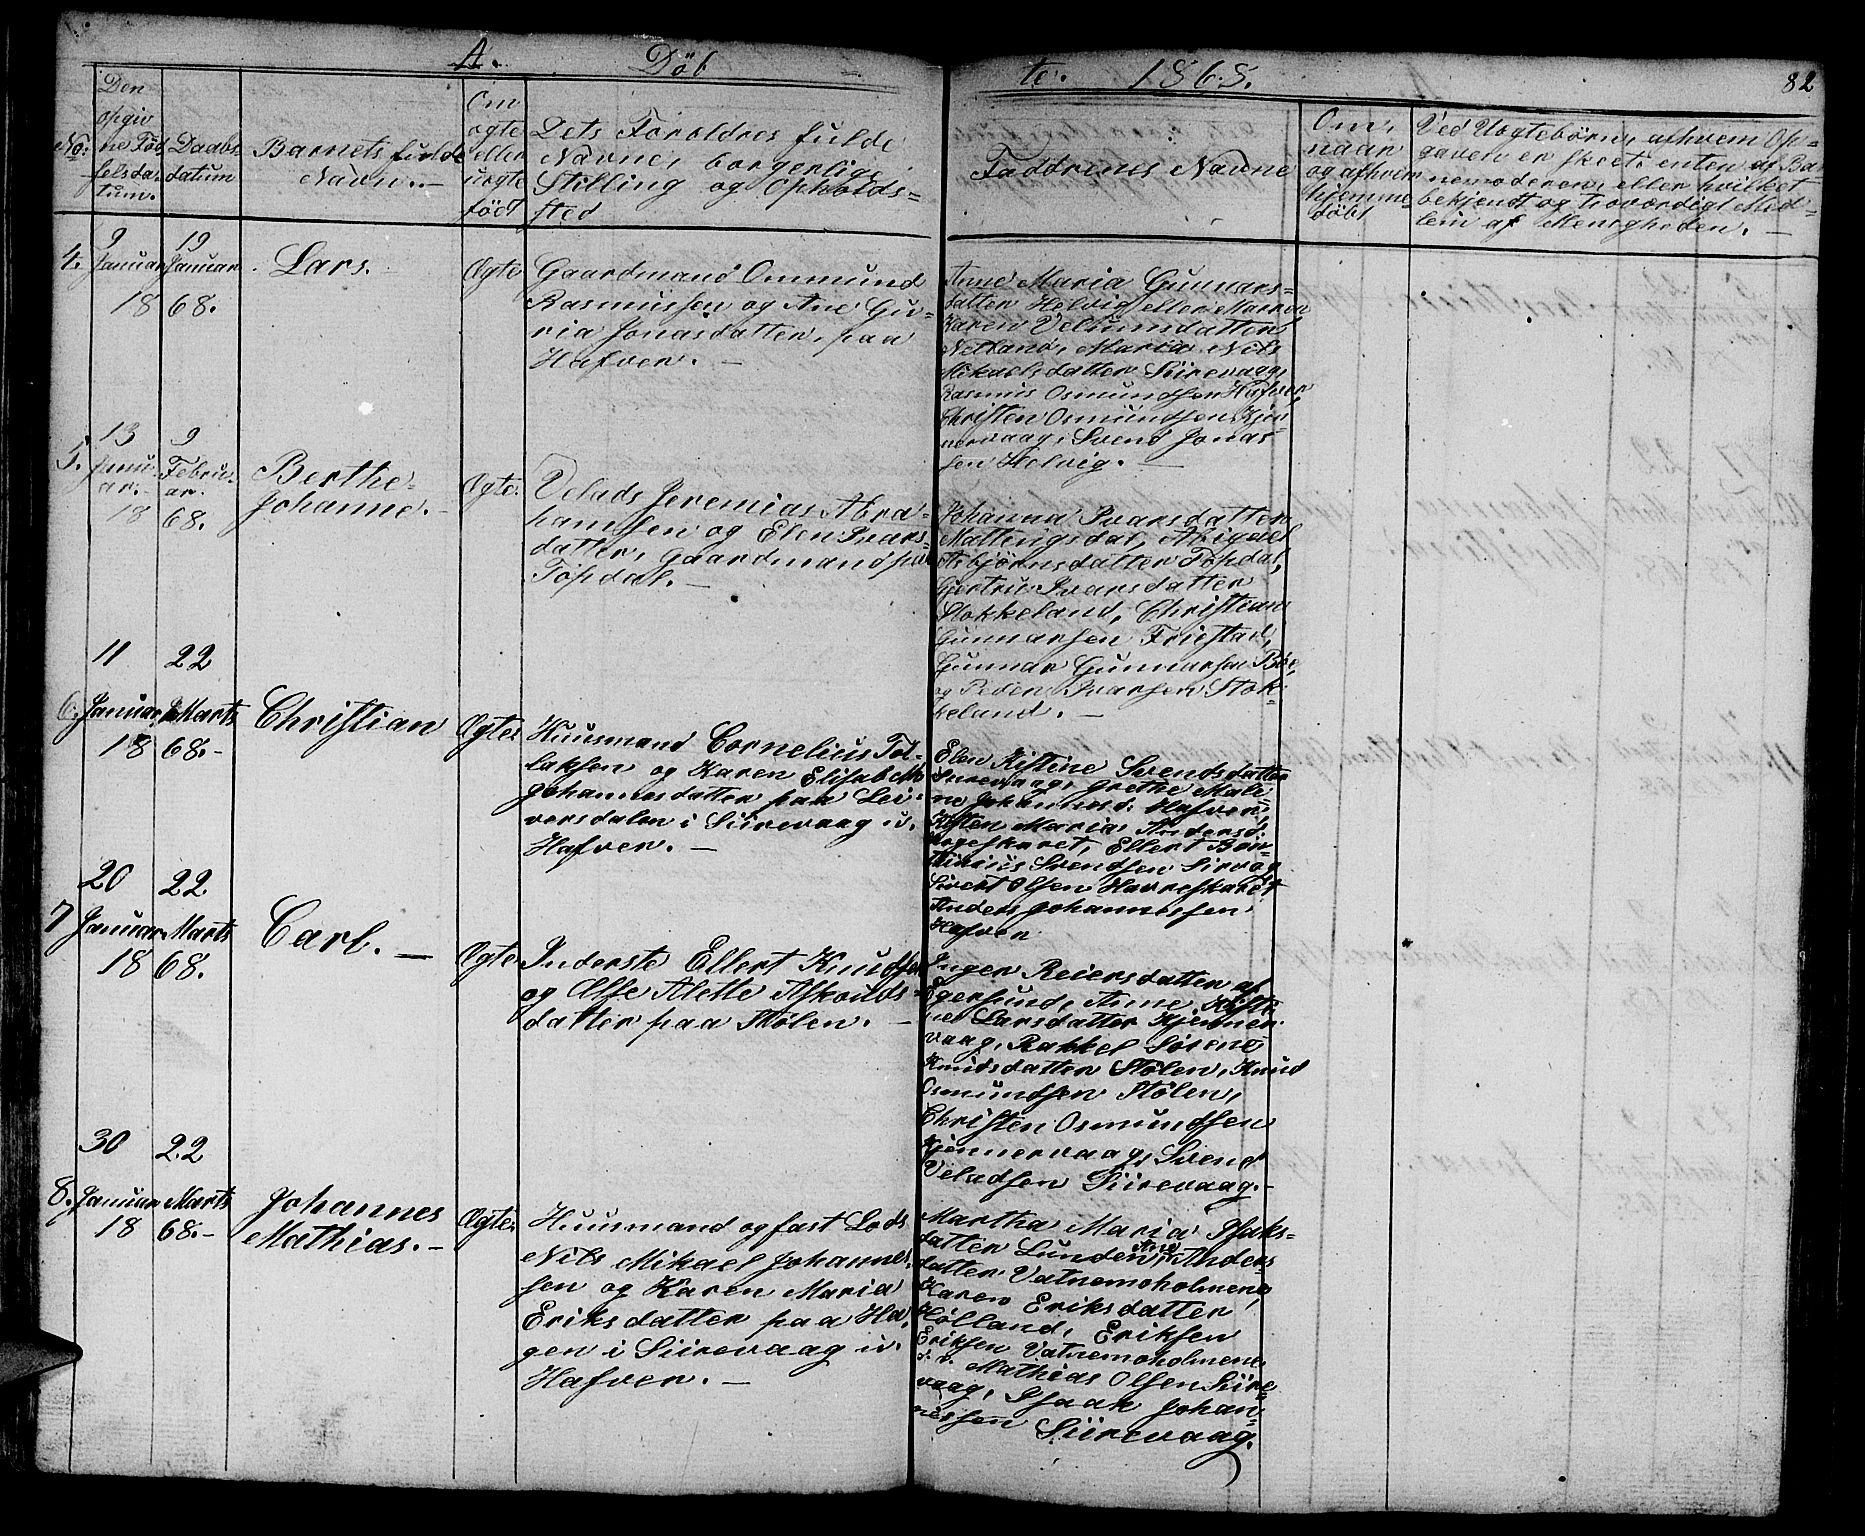 A. Döb
te. 1868.
82
No:
Den
opgiv
ne Föd
felsda-
tum.
Daabs
datum
Barnets fulde
Navn. -
Om
ægte
eller
uægte
födt
Dets Forældres fulde
Navne, borgerlige
Stilling og Opholds=
sted
Faddrenes Navne
Om,
naar
og afhvem
hjemme
döbt
Ved Uægtebörn, afhvem Op=
gaven er skeet: enten af Bar
nemoderen, eller hvilket
bekjendt og troværdigt Med=
lem af Menigheden. -
4.
9
Januar
18
19
Januar
68.
Lars.
Ægte
Gaardmand Ommund
Rasmussen og Ane Gu=
ria Jonasdatter, paa
Hafver. -
Anne Maria Gunnars=
datter Helvig eller
Karen Velumsdatter
Netland, Maria Nils
Mikaelsdatter Siirevaag,
Rasmus Osmundsen Hafver,
Christen Osmundsen Kjen
nervaag, Svend Jonas=
sen Helvig. -
5.
13
Janu-
ar.
18
9
Febru-
ar.
68.
Berthe=
Johanne. -
Ægte.
Velads Jeremias Abra=
hamsen og Elen Ivars=
datter, gaardmand paa
Topdal. -
Johanna Ivarsdatter
Mattingsdal, Abigael
Asbjörnsdatter Topdal,
Gjertrue Ivarsdatter
Stokkeland, Christian
Gunnarsen Friestad,
Gunnar Gunnarsen Böe
og Peder Ivarsen Stok=
keland. -
6.
11
Januar
18
22
Marts
68. -
Christian
Ægte
Huusmand Cornelius Tol-
laksen og Karen Elisabeth
Johannesdatter paa Lei-
versdalen i Siirevaag u.
Hafver. -
Elen Kistine Svendsdatter
Siirevaag, Grethe Male=
ne Johannesd. Hafver,
Kisten Maria Andersd.
Ellert Ben=
Svendsen Sirvaag
Sivert Olsen Havreskaret
Anders Johannessen
Hafver
7
20
Januar
18
22
Marts
68.
Carl. -
Ægte
Inderste Ellert Knudsen
og Else Alette Askouds=
datter paa Stölen. -
Inger Reiersdatter af
Egersund, Anne Kisti
ne Larsdatter Kjenner
vaag, Rakkel Sörene
Knudsdatter Stölen, Knud
Osmundsen Stölen,
Christen Osmundsen
Kjennervaag, Svend
Veladsen Siirevaag. -
8.
30
Januar
18
22
Marts
68. -
Johannes
Mathias. -
Ægte
Huusmand og fast Lods
Nils Mikael Johannes
sen og Karen Maria
Eriksdatter paa Ha-
gen i Siirevaag u.
Hafver. -
Martha Maria Isaks=
datter Lunden, Ane Anders
datter Vatnemoholmene,
Karen Eriksdatter
Hölland, Eriksen
Eriksen Vatnemoholmene
Mathias Olsen Siire
vaag, Isaak Johan=
nessen Siirevaag.